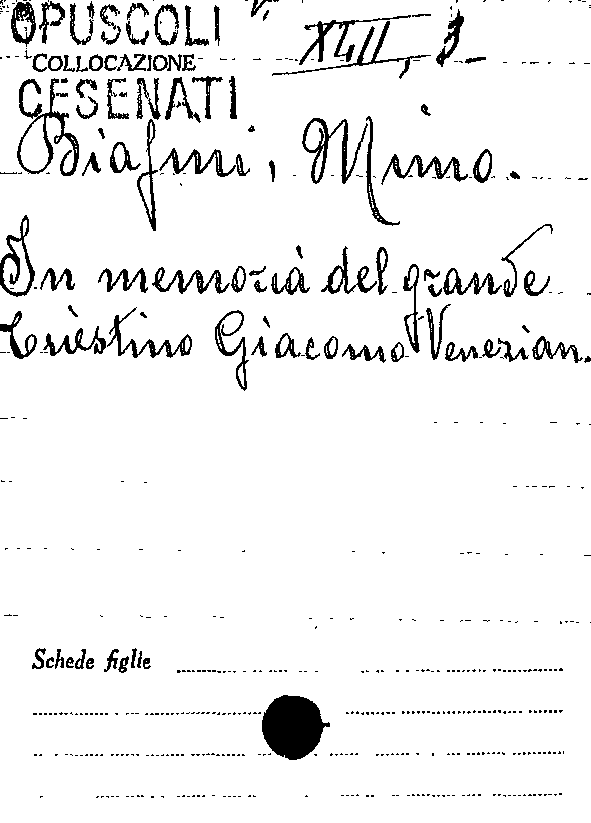 OPUSCOLI
COLLOCAZIONE
CESENATI
XLII, 3
Biagini, Mimo.
In memoria del grande
triestino Giacomo Venezian.
Schede figlie